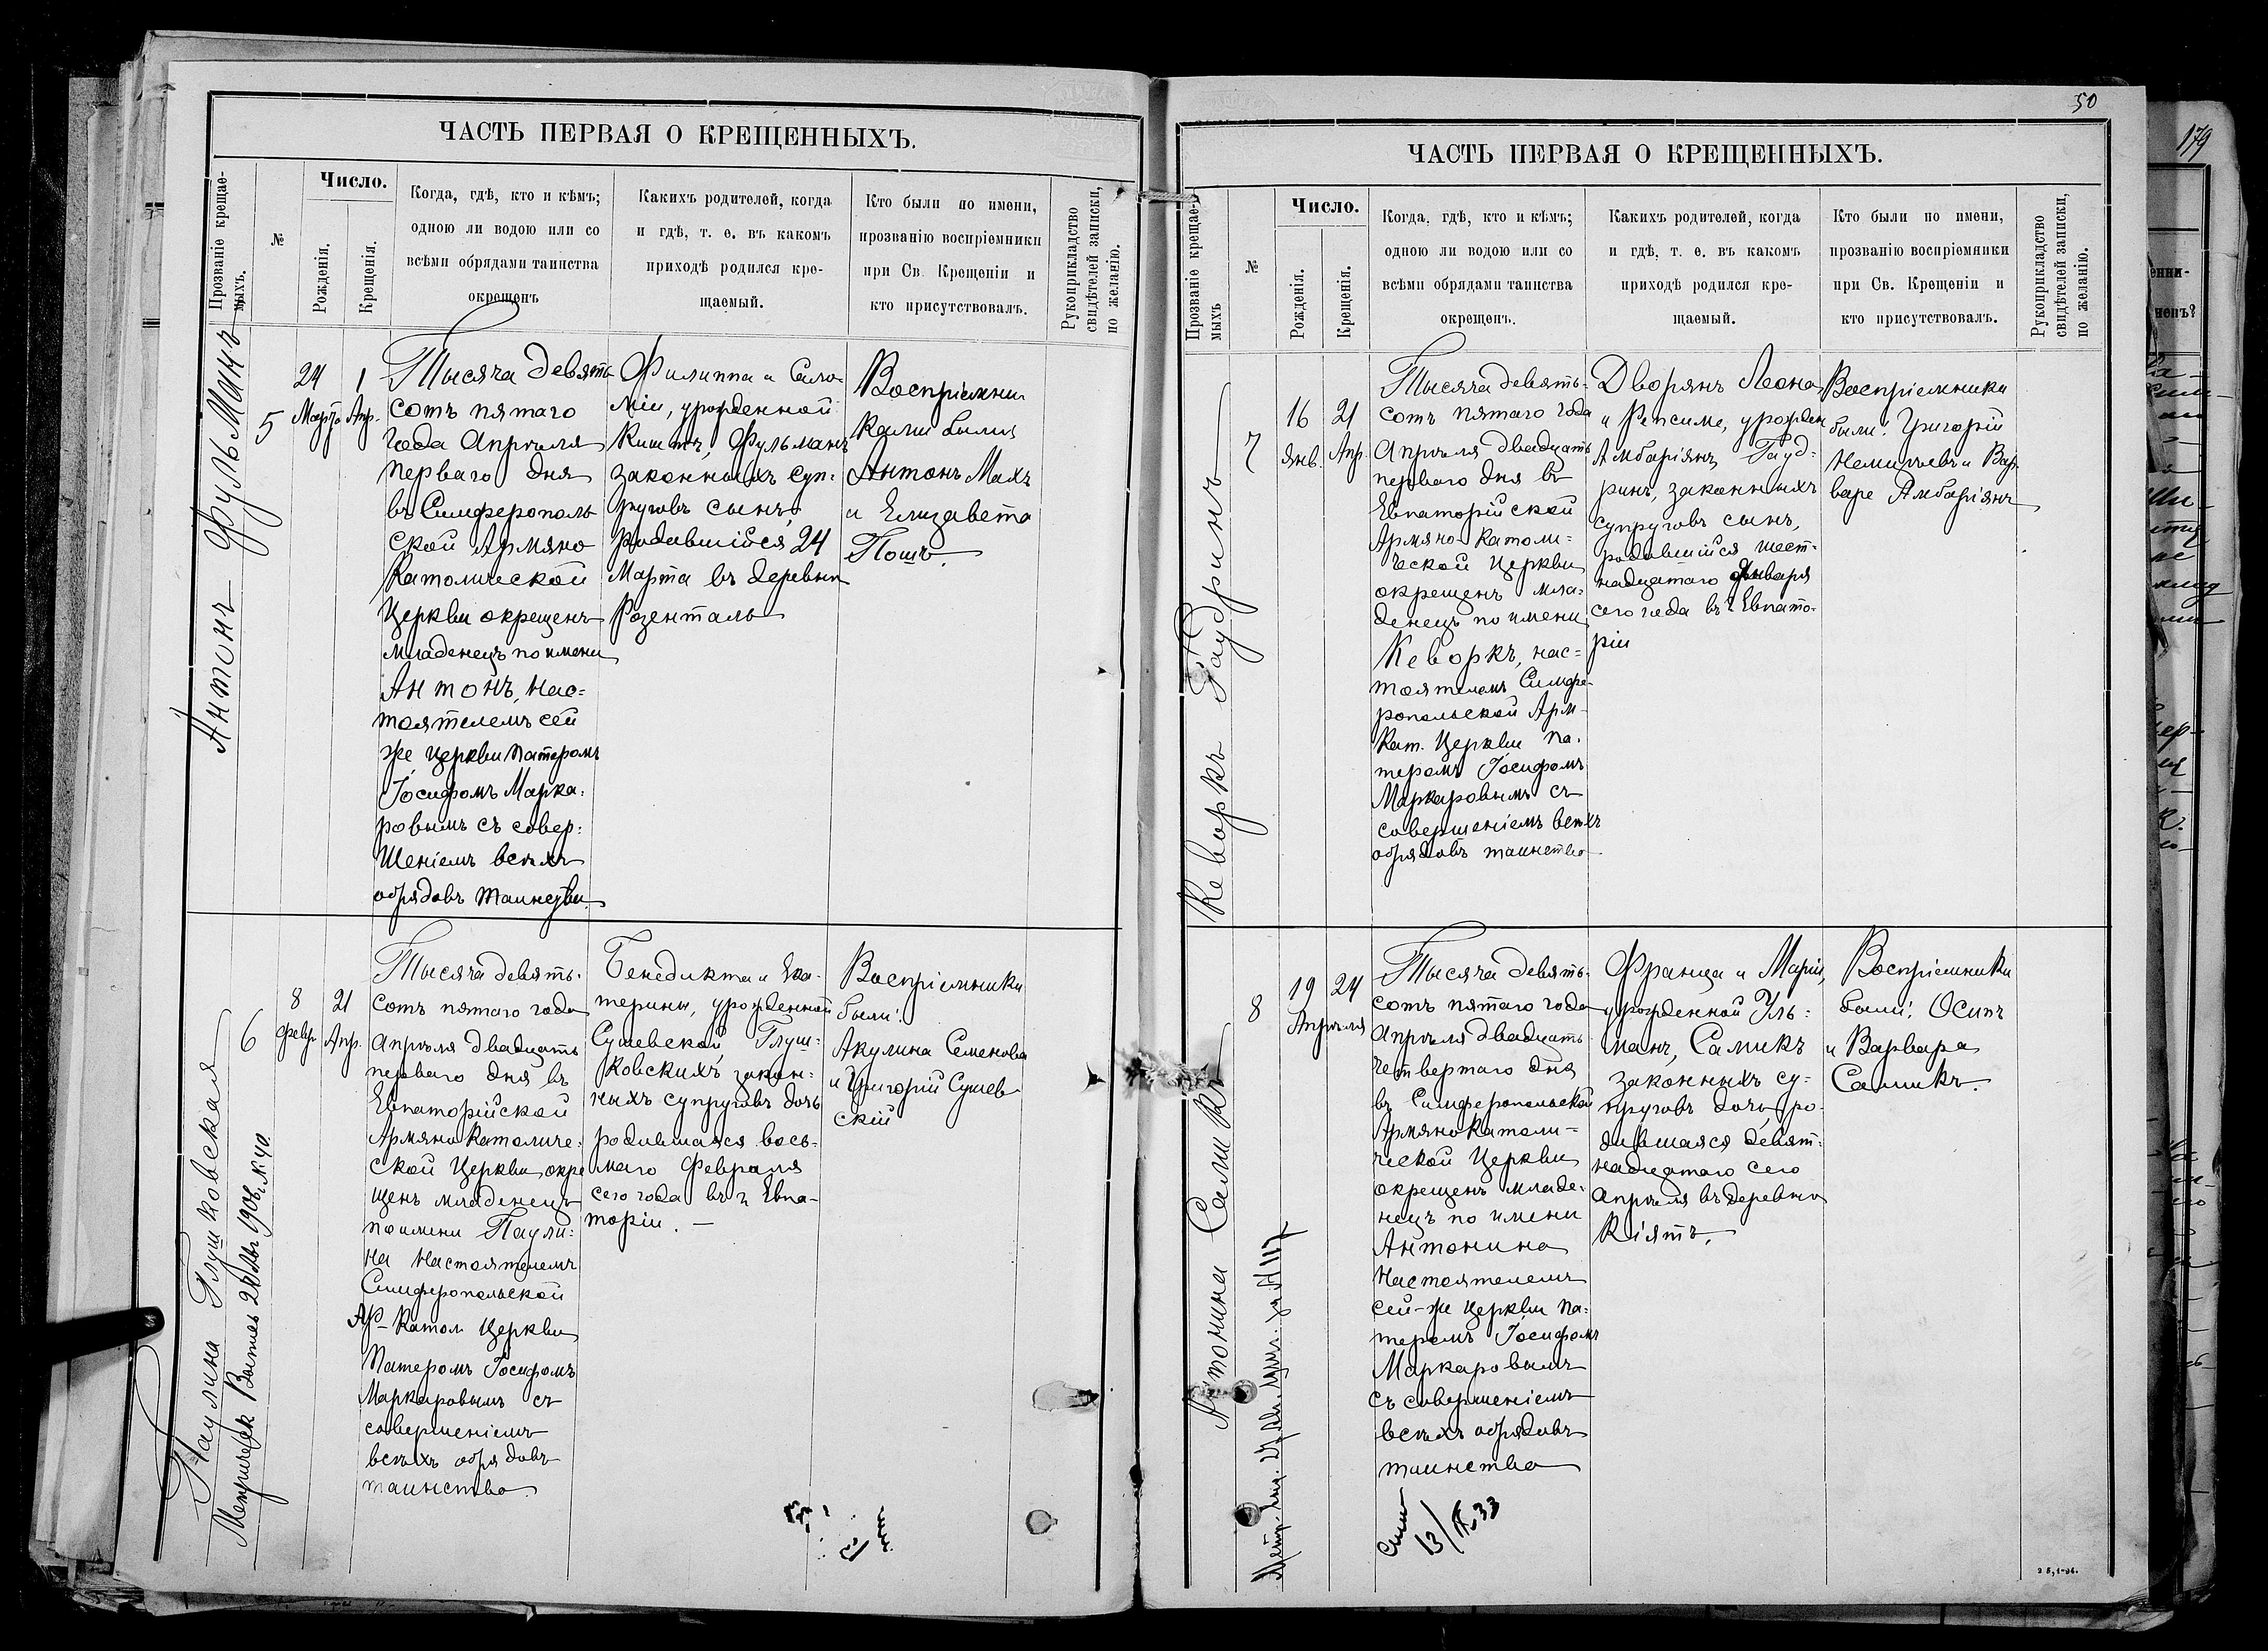 ЧАСТЬ ПЕРВАЯ О КРЕЩЕННЫХЪ.
Прозваніе крещае-
мыхъ.
№
Число.
Рожденія.
Крещенія.
Когда, гдѣ, кто и кѣмъ;
одною ли водою или со
всѣми обрядами таинства
окрещенъ
Какихъ родителей, когда
и гдѣ, т. е. въ какомъ
приходѣ родился кре-
щаемый.
Кто были по имени,
прозванію воспріемники
при Св. Крещеніи и
кто присутствовалъ.
Рукоприкладство
свидѣтелей записки,
по желанію.
Антонъ Фульманъ
5
24
Марта
1
Апр.
Тысяча девять
сотъ пятаго
года Апрѣля
перваго дня
въ Симферополь
ской Армяно
Католической
Церкви окрещенъ
младенецъ по имени
Антонъ, нас=
тоятелемъ сей
же церкви Патеромъ
Іосифомъ Марка=
ровымъ съ совер=
шеніемъ всѣхъ
обрядовъ таинства.
Филиппа и Сало-
міи, урожденной
Фульманъ
законныхъ суп=
руговъ сынъ,
родившійся 24
Марта въ деревнѣ
Розенталь
Воспріемни
ками были
Антонъ Махъ
и Елизавета
Пошъ.
Паулина Глушковская
1906 г. № 40.
6
8
Февр.
21
Апр.
Тысяча девять=
сотъ пятаго года
Апрѣля двадцать
перваго дня въ
Евпаторійской
Армяно Католиче=
ской Церкви окре
щенъ младенецъ
по имени Паули=
на Настоятелемъ
Симферопольской
Ар-Катол Церкви
Патеромъ Іосифомъ
Маркаровымъ съ
совершеніемъ
всѣхъ обрядовъ
таинства.
Бенедикта и Ека-
терины, урожденной
Сушевской Глуш=
ковскихъ закон=
ныхъ супруговъ дочь
родившаяся вось=
маго Февраля
сего года въ г. Евпа-
торіи. —
Воспріемники
были:
Акулина Семенова
и Григорій Сушев
скій
50
ЧАСТЬ ПЕРВАЯ О КРЕЩЕННЫХЪ.
Прозваніе крещае-
мыхъ
№
Число.
Рожденія.
Крещенія.
Когда, гдѣ, кто и кѣмъ;
одною ли водою или со
всѣми обрядами таинства
окрещенъ.
Какихъ родителей, когда
и гдѣ, т. е. въ какомъ
приходѣ родился кре-
щаемый.
Кто были по имени,
прозванію воспріемники
при Св. Крещеніи и
кто присутствовалъ.
Рукоприкладство
свидѣтелей записки,
по желанію.
Кеворкъ Гаудринъ
7
16
Янв.
21
Апр.
Тысяча девять-
сотъ пятаго года
Апрѣля двадцать
перваго дня въ
Евпаторійской
Армяно-Католи=
ческой Церкви
окрещенъ мла=
денецъ по имени
Кеворкъ, нас=
тоятелемъ Симфе-
ропольской Арм-
Кат. Церкви Па-
теромъ Іосифомъ
Маркаровымъ съ
совершеніемъ всѣхъ
обрядовъ таинства
Дворянъ Леона
и Репсиме, урожден
Амбаріянъ Гауд=
ринъ, законныхъ
супруговъ сынъ,
родившійся шест=
надцатаго Января
сего года въ г. Евпато-
ріи
Воспріемники
были: Григорій
Немичевъ и Вар
варе Амбаріянъ
Антонина Саликъ
№ 117
8
19
24
Апрѣля
Тысяча девять=
сотъ пятаго года
Апрѣля двадцать
четвертаго дня
въ Симферопольской
Армяно Католи=
ческой Церкви
окрещенъ младе=
нецъ по имени
Антонина
Настоятелемъ
сей-же Церкви Па=
теромъ Іосифомъ
Маркаровымъ
съ совершеніемъ
всѣхъ обрядовъ
таинства
13/IX 33
Франца и Маріи,
урожденной Уль=
манъ, Саликъ
законныхъ су=
пруговъ дочь ро-
дившаяся девят=
надцатаго сего
Апрѣля въ деревнѣ
Кіятъ.
Воспріемники
были: Осипъ
и Варвара
Саликъ.
179